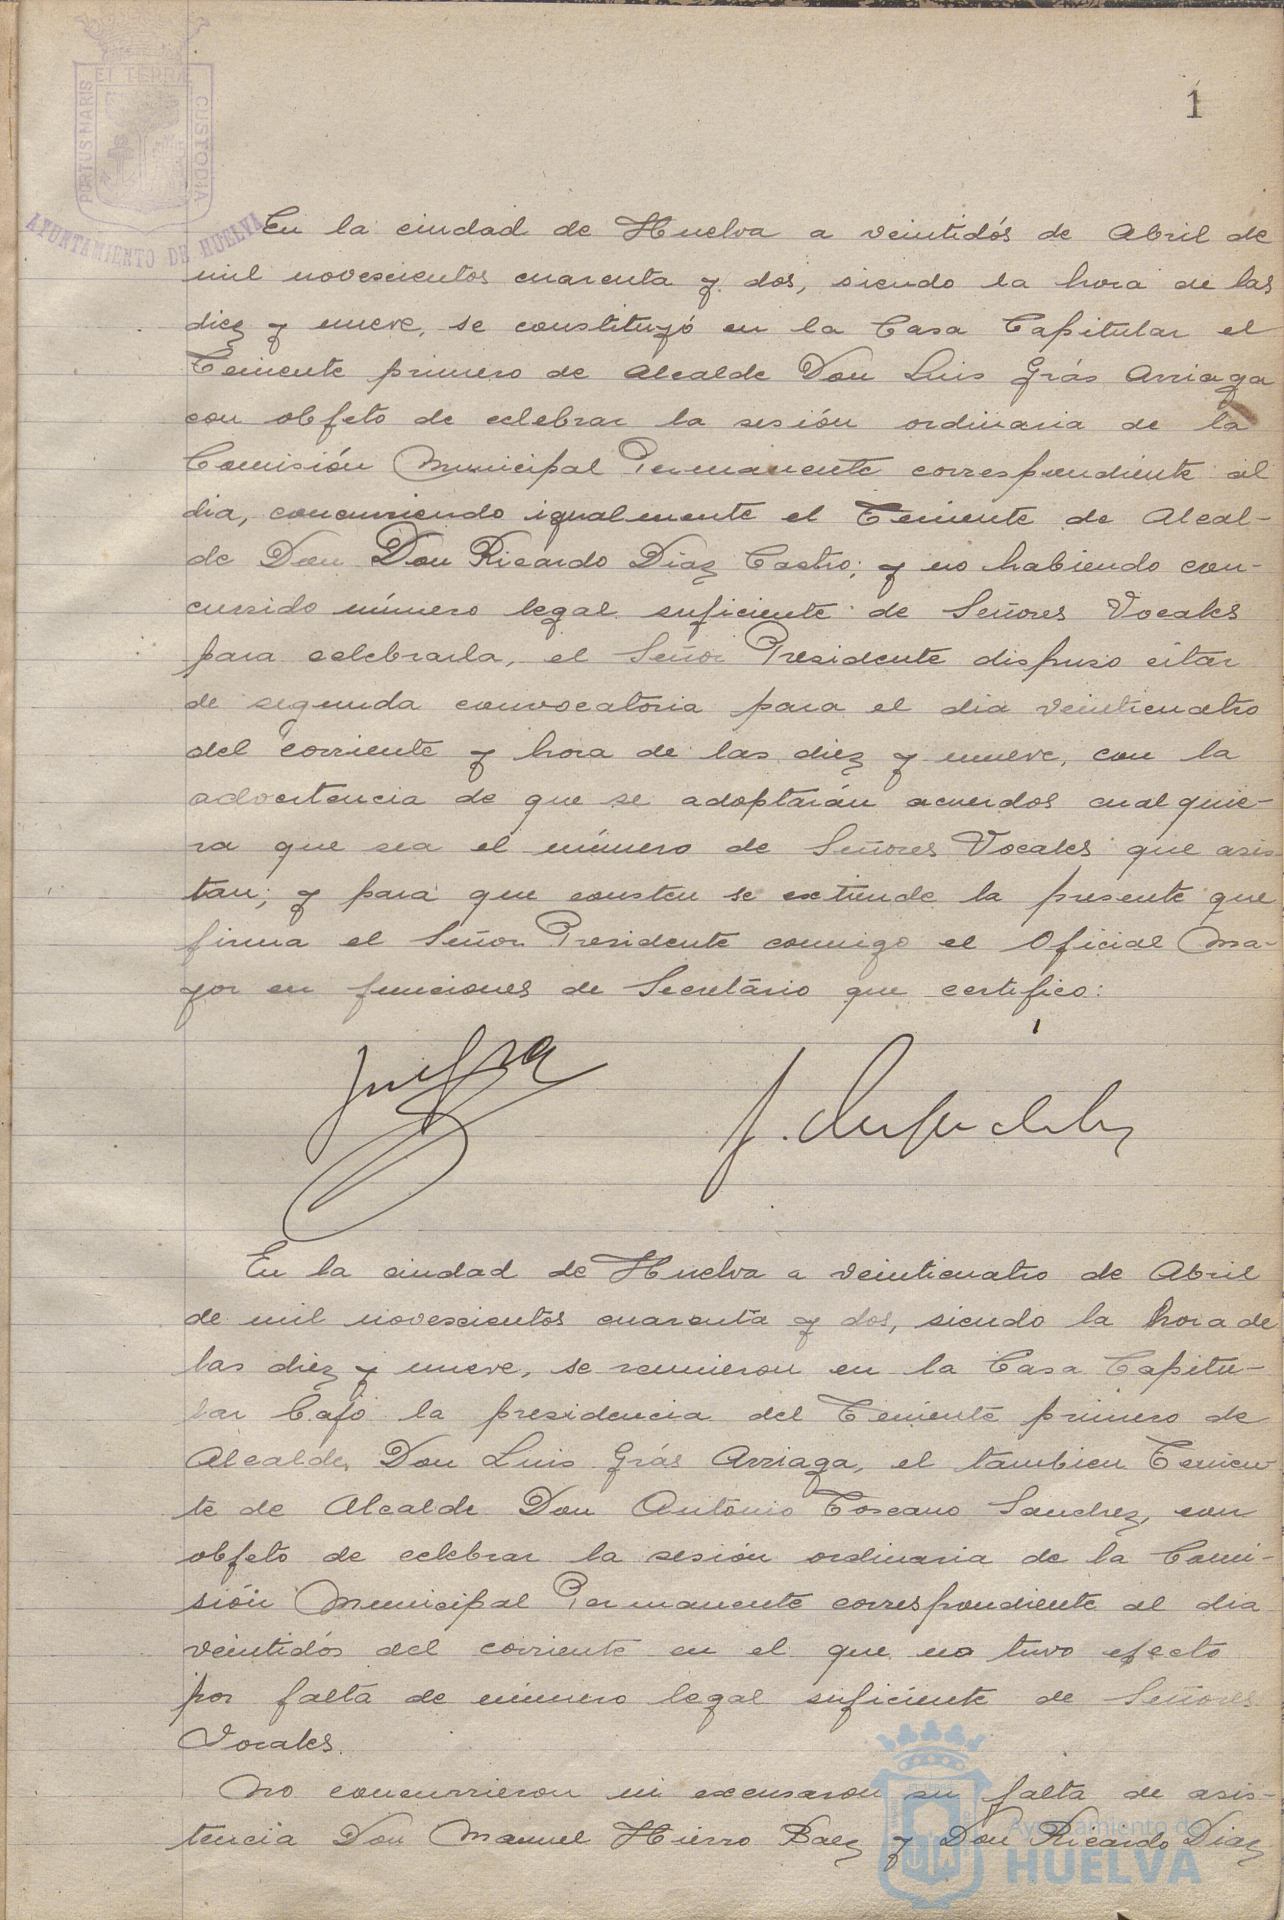 1
PORTUS MARIS
ET TERRÆ
CUSTODIA
AYUNTAMIENTO DE HUELVA
En la ciudad de Huelva a veintidós de Abril de
mil novescientos cuarenta y dos, siendo la hora de las
diez y nueve, se constituyó en la Casa Capitular el
Teniente primero de Alcalde Don Luis Grás Arriaga
con objeto de celebrar la sesión ordinaria de la
Comisión Municipal Permanente correspondiente al
dia, concurriendo igualmente el Teniente de Alcal-
de Don Don Ricardo Diaz Castro; y no habiendo con-
currido número legal suficiente de Señores Vocales
para celebrarla, el Señor Presidente dispuso citar
de segunda convocatoria para el dia veinticuatro
del corriente y hora de las diez y nueve, con la
advertencia de que se adoptarán acuerdos cualquie-
ra que sea el número de Señores Vocales que asis
tan; y para que consten se extiende la presente que
firma el Señor Presidente conmigo el Oficial Ma-
yor en funciones de Secretário que certifico:
En la ciudad de Huelva a veinticuatro de Abril
de mil novescientos cuarenta y dos, siendo la hora de
las diez y nueve, se reunieron en la Casa Capitu-
lar bajo la presidencia del Teniente primero de
Alcalde, Don Luis Grás Arriaga, el tambien Tenien-
te de Alcalde Don António Toscano Sanchez, con
objeto de celebrar la sesión ordinaria de la Comi-
sión Municipal Permanente correspondiente al dia
veintidós del corriente en el que no tuvo efecto
por falta de número legal suficiente de Señores
Vocales.
No concurrieron ni excusaron su falta de asis-
tencia Don Manuel Hierro Baez y Don Ricardo Diaz
Ayuntamiento de
HUELVA